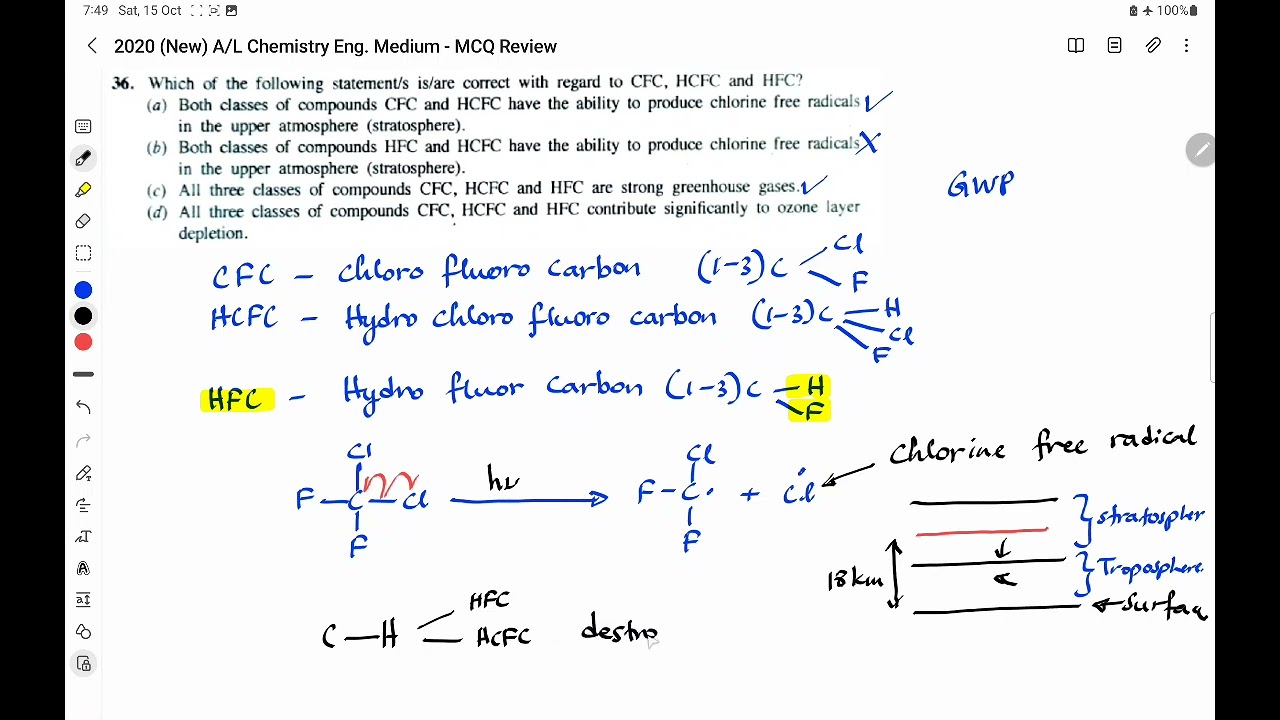 7:49 Sat, 15 Oct
100%
2020 (New) A/L Chemistry Eng. Medium - MCQ Review
36. Which of the following statement/s is/are correct with regard to CFC, HCFC and HFC?
(a) Both classes of compounds CFC and HCFC have the ability to produce chlorine free radicals
in the upper atmosphere (stratosphere).
(b) Both classes of compounds HFC and HCFC have the ability to produce chlorine free radicals
in the upper atmosphere (stratosphere).
(c) All three classes of compounds CFC, HCFC and HFC are strong greenhouse gases.
(d) All three classes of compounds CFC, HCFC and HFC contribute significantly to ozone layer
depletion.
GWP
CFC – chloro fluoro carbon (1-3)C Cl F
HCFC – Hydro chloro fluoro carbon (1-3)C H Cl F
HFC – Hydro fluor carbon (1-3)C H F
Chlorine free radical
Cl Cl
F-C-Cl hν F-C· + Cl
F F
stratospher
18km
Troposphere
surfac
HFC
C-H HCFC destro